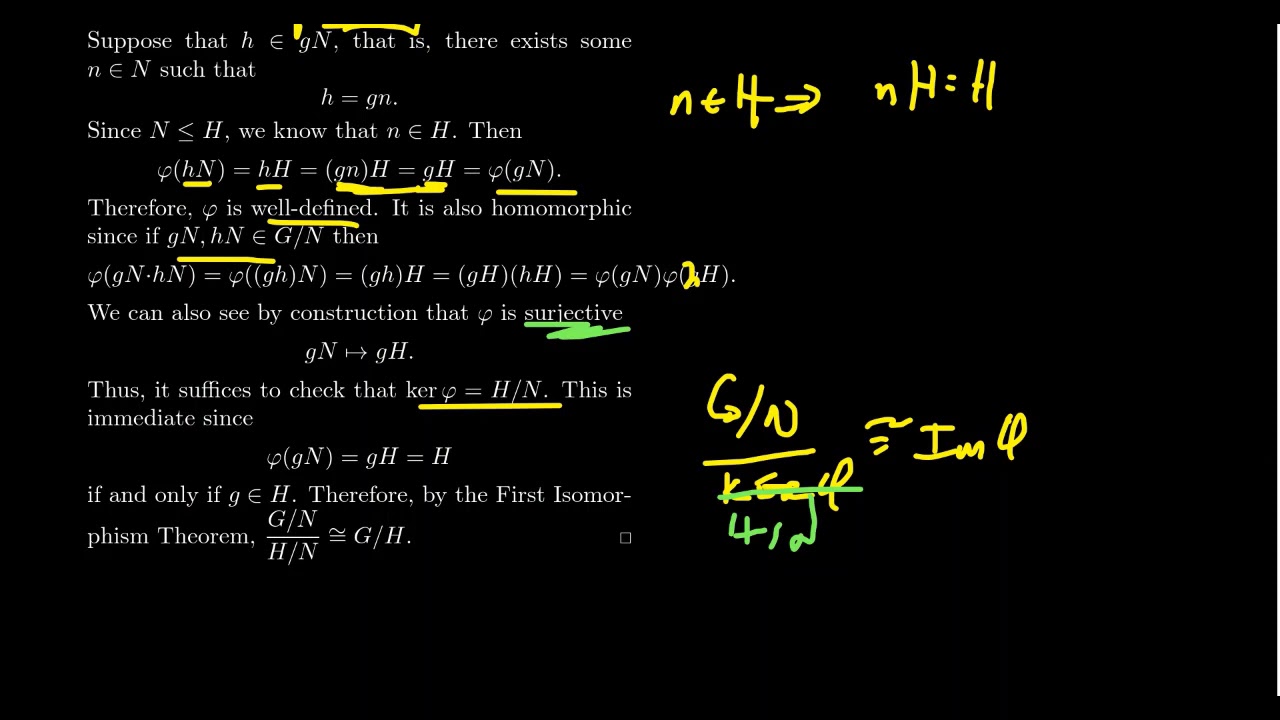 Suppose that h ∈ gN, that is, there exists some
n ∈ N such that
h = gn.
Since N ≤ H, we know that n ∈ H. Then
φ(hN) = hH = (gn)H = gH = φ(gN).
Therefore, φ is well-defined. It is also homomorphic
since if gN, hN ∈ G/N then
φ(gN·hN) = φ((gh)N) = (gh)H = (gH)(hH) = φ(gN)φ(hH).
We can also see by construction that φ is surjective
gN ↦ gH.
Thus, it suffices to check that ker φ = H/N. This is
immediate since
φ(gN) = gH = H
if and only if g ∈ H. Therefore, by the First Isomor-
phism Theorem, (G/N)/(H/N) ≅ G/H. □
n ∈ H ⇒ nH = H
G/N
ker φ ≅ Im φ
H/N